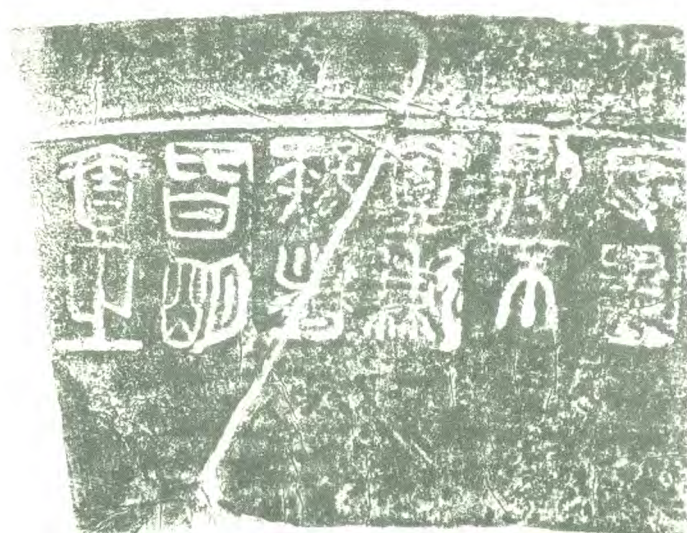 度量
則不
壹歉
疑者
皆明
壹之